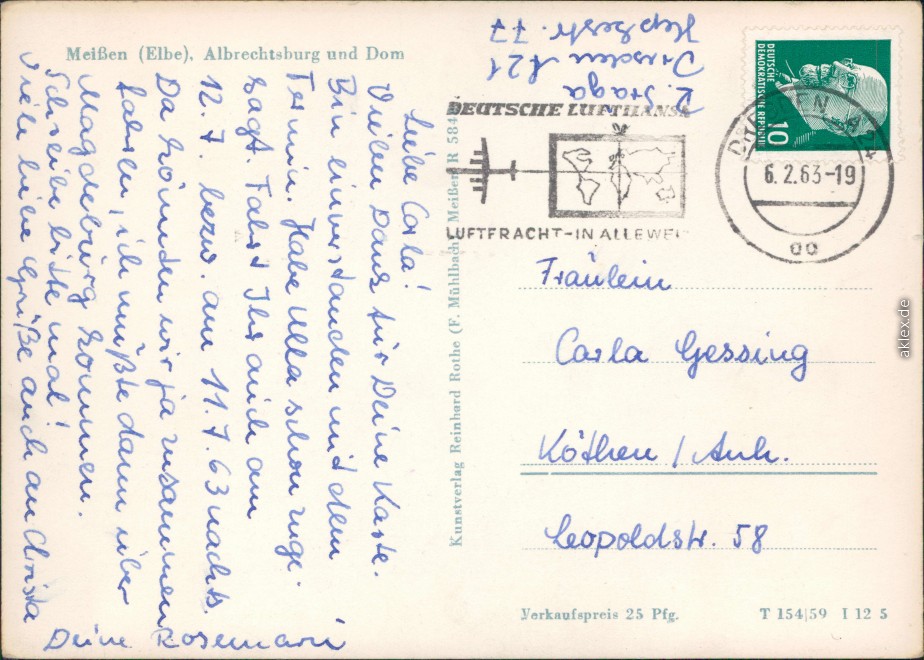 Meißen (Elbe), Albrechtsburg und Dom
Liebe Carla!
Vielen Dank für Deine Karte.
Bin einverstanden mit dem
Termin. Habe Ulla schon zuge-
sagt. Fahrt Ihr auch am
12.7. bezw. am 11.7.63 nachts.
Da könnten wir ja zusammen
fahren, ich müßte dann über
Magdeburg kommen.
Schreibe bitte mal!
Viele liebe Grüße auch an Christa
Deine Rosemarie
Kunstverlag Reinhard Rothe (F. Mühlbach) Meißen R 584
Dresden A21
Hepkestr. 77
DEUTSCHE LUFTHANSA
LUFTFRACHT-IN ALLE WEL
DEUTSCHE
DEMOKRATISCHE REPUBLIK
10
DRESDEN A 24
6.2.63-19
Fräulein
Carla Gessing
Köthen / Anh.
Leopoldstr. 58
Verkaufspreis 25 Pfg.
T 154|59 I 12 5
aklex.de